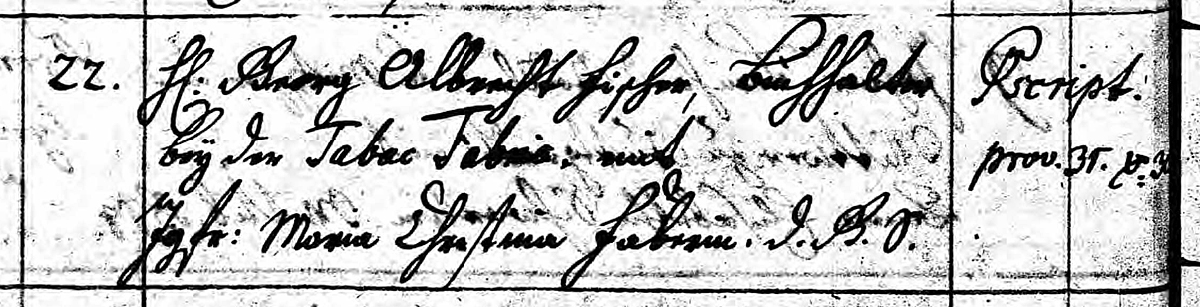 22. H: Georg Albrecht Fischer, Buchhalter Rscript:
bey der Tabac Fabric. mit prov. 31. xr.
Jgfr: Maria Christina Faberin. d. G. S.